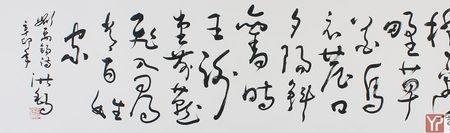 橋邊
野草
花烏
衣巷口
夕陽斜
舊時
王謝
堂前燕
飛入尋
常百姓
家
劉禹錫詩
辛卯年